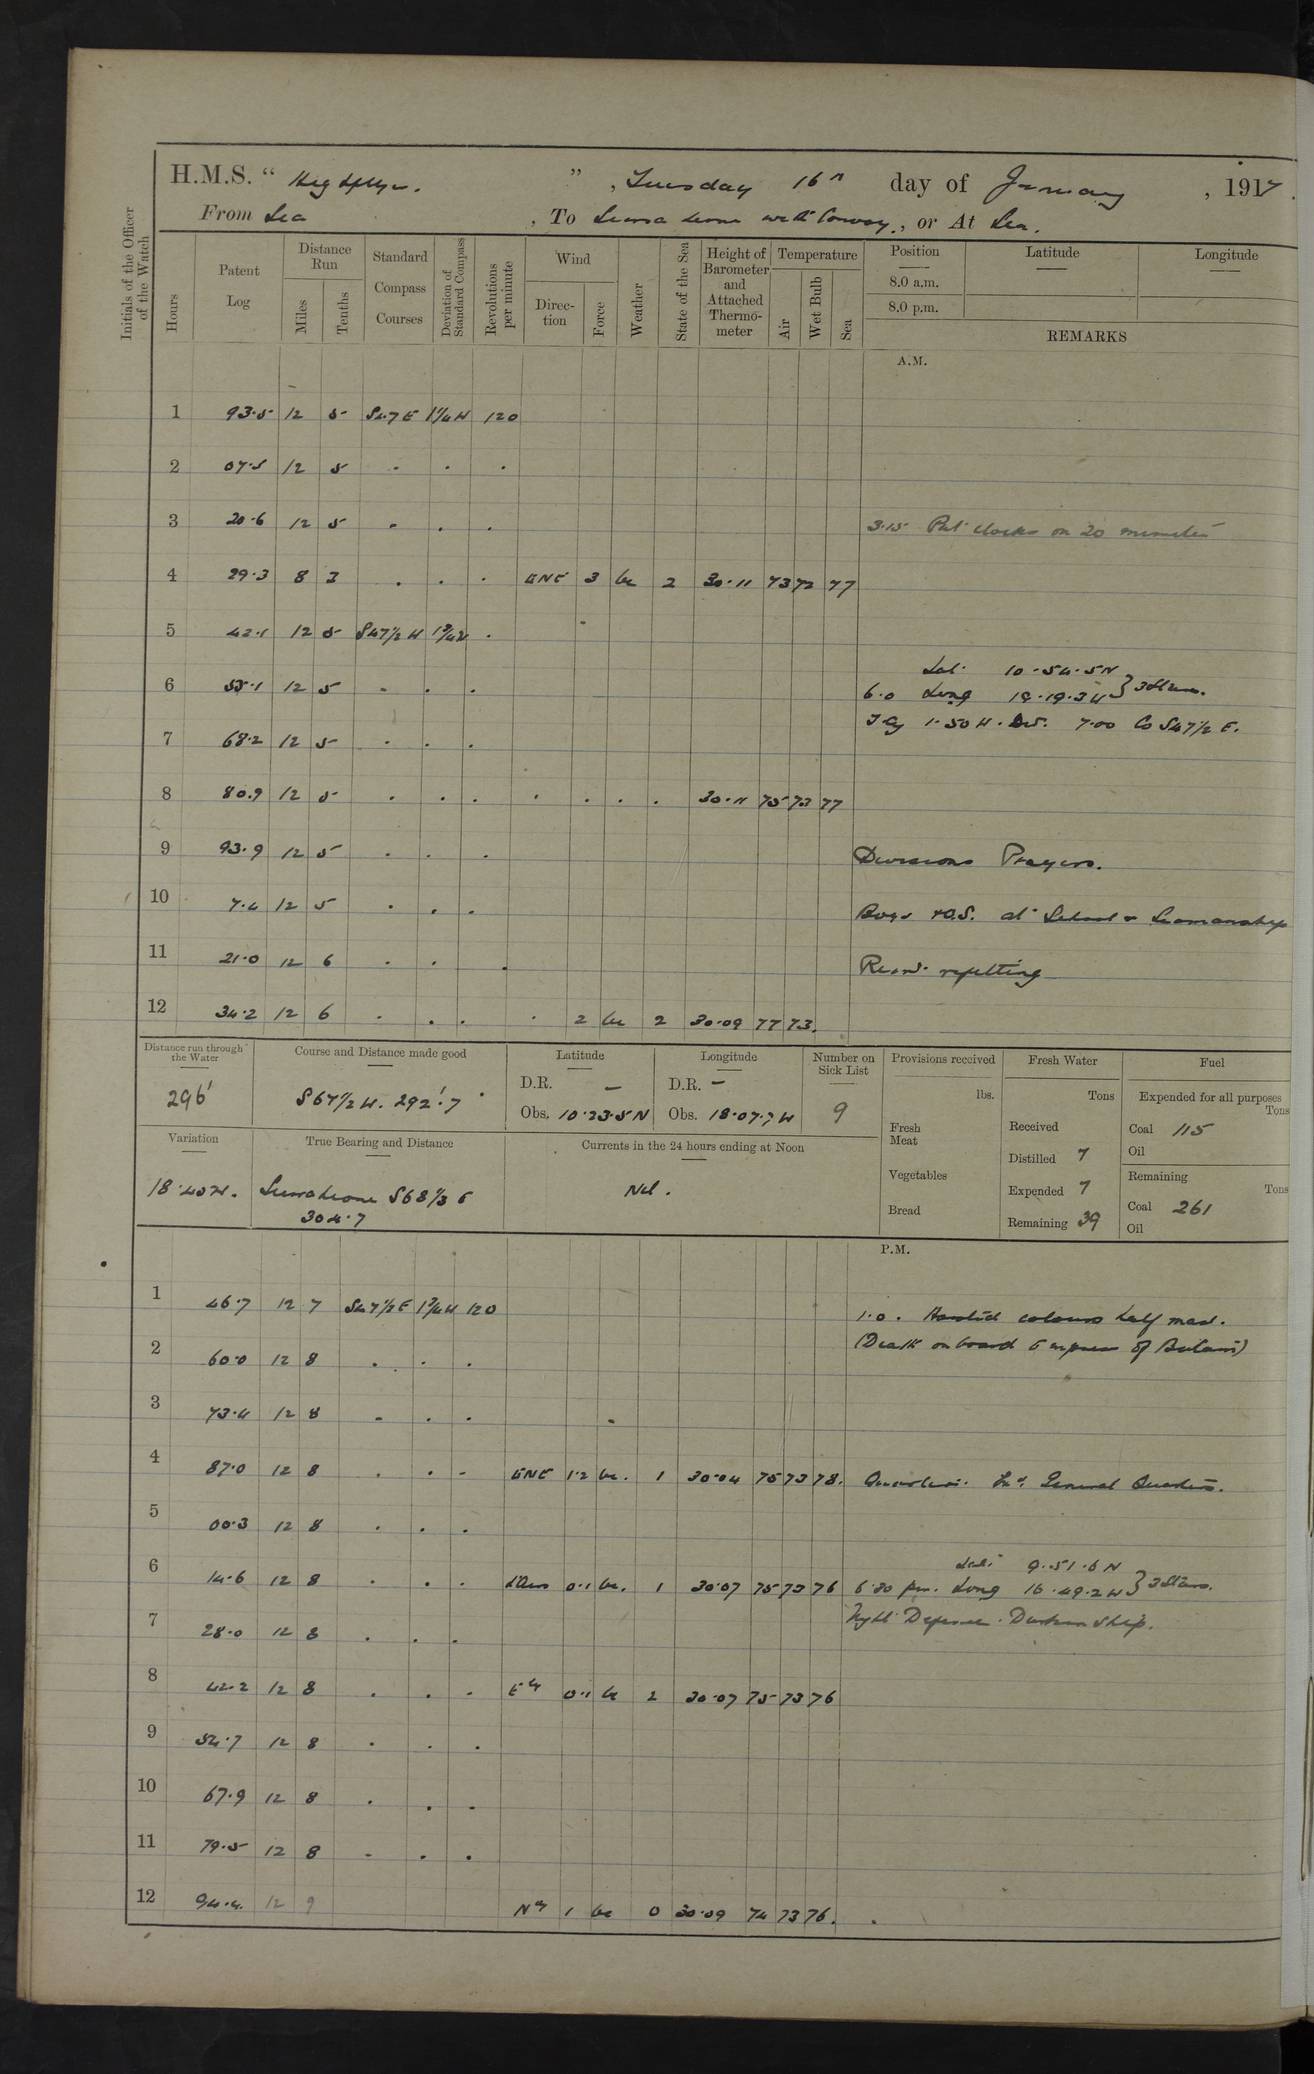 H.M.S. “ Highflyer. ” , Tuesday 16th day of January , 1917.
From Sea , To Sierra Leone with Convoy , or At Sea.
Initials of the Officer of the Watch
Hours
Patent Log
Distance Run
Miles
Tenths
Standard Compass Courses
Deviation of Standard Compass
Revolutions per minute
Wind
Direction
Force
Weather
State of the Sea
Height of Barometer and Attached Thermometer
Temperature
Air
Wet Bulb
Sea
Position
8.0 a.m.
8.0 p.m.
Latitude
Longitude
REMARKS
A.M.
1 93.5 12 5 S47E 1¼W 120
2 07.5 12 5 . . .
3 20.6 12 5 . . . 3.15 Put clocks on 20 minutes
4 29.3 8 3 . . . ENE 3 bc 2 30.11 73 72 77
5 42.1 12 5 S47½ 1¾W .
Lat. 10.54.5N
6 55.1 12 5 . . . 6.0 Long 19.19.3W } 3 Stars.
1.50W. Dev. 7.00 Co S47½E.
7 68.2 12 5 . . .
8 80.9 12 5 . . . . . . . 30.11 75 73 77
9 93.9 12 5 . . . Divisions Prayers.
10 7.4 12 5 . . . Boys & O.S. at School & Seamanship
11 21.0 12 6 . . . refitting
12 34.2 12 6 . . . . 2 bc 2 30.09 77 73.
Distance run through the Water
296'
Course and Distance made good
S 67½ . 292'.7
Latitude
D.R. —
Obs. 10.23.5N
Longitude
D.R. —
Obs. 18.07.7W
Number on Sick List
9
Provisions received
lbs.
Fresh Meat
Vegetables
Bread
Fresh Water
Tons
Received
Distilled 7
Expended 7
Remaining 39
Fuel
Expended for all purposes
Tons
Coal 115
Oil
Remaining
Tons
Coal 261
Oil
Variation
18.40W.
True Bearing and Distance
Sierra Leone S68⅓E
304.7
Currents in the 24 hours ending at Noon
Nil.
P.M.
1 46.7 12 7 S47½E 1¾W 120 1.0. Hoisted colours half mast.
2 60.0 12 8 . . . (Death on board Empress of Britain)
3 73.4 12 8 . . .
4 87.0 12 8 . . . ENE 1.2 bc. 1 30.04 75 73 78. Quarters. General Quarters.
5 00.3 12 8 . . .
Lat. 9.51.6N
6 14.6 12 8 . . . 0.1 bc. 1 30.07 75 73 76 6.30 pm. Long 16.49.2W } 3 Stars.
Night Defence. Darken Ship.
7 28.0 12 8 . . .
8 42.2 12 8 . . . Ely 0.1 bc 2 30.07 75 73 76
9 54.7 12 8 . . .
10 67.9 12 8 . . .
11 79.5 12 8 . . .
12 94.4. 12 9 Nly 1 bc 0 30.09 74 73 76.